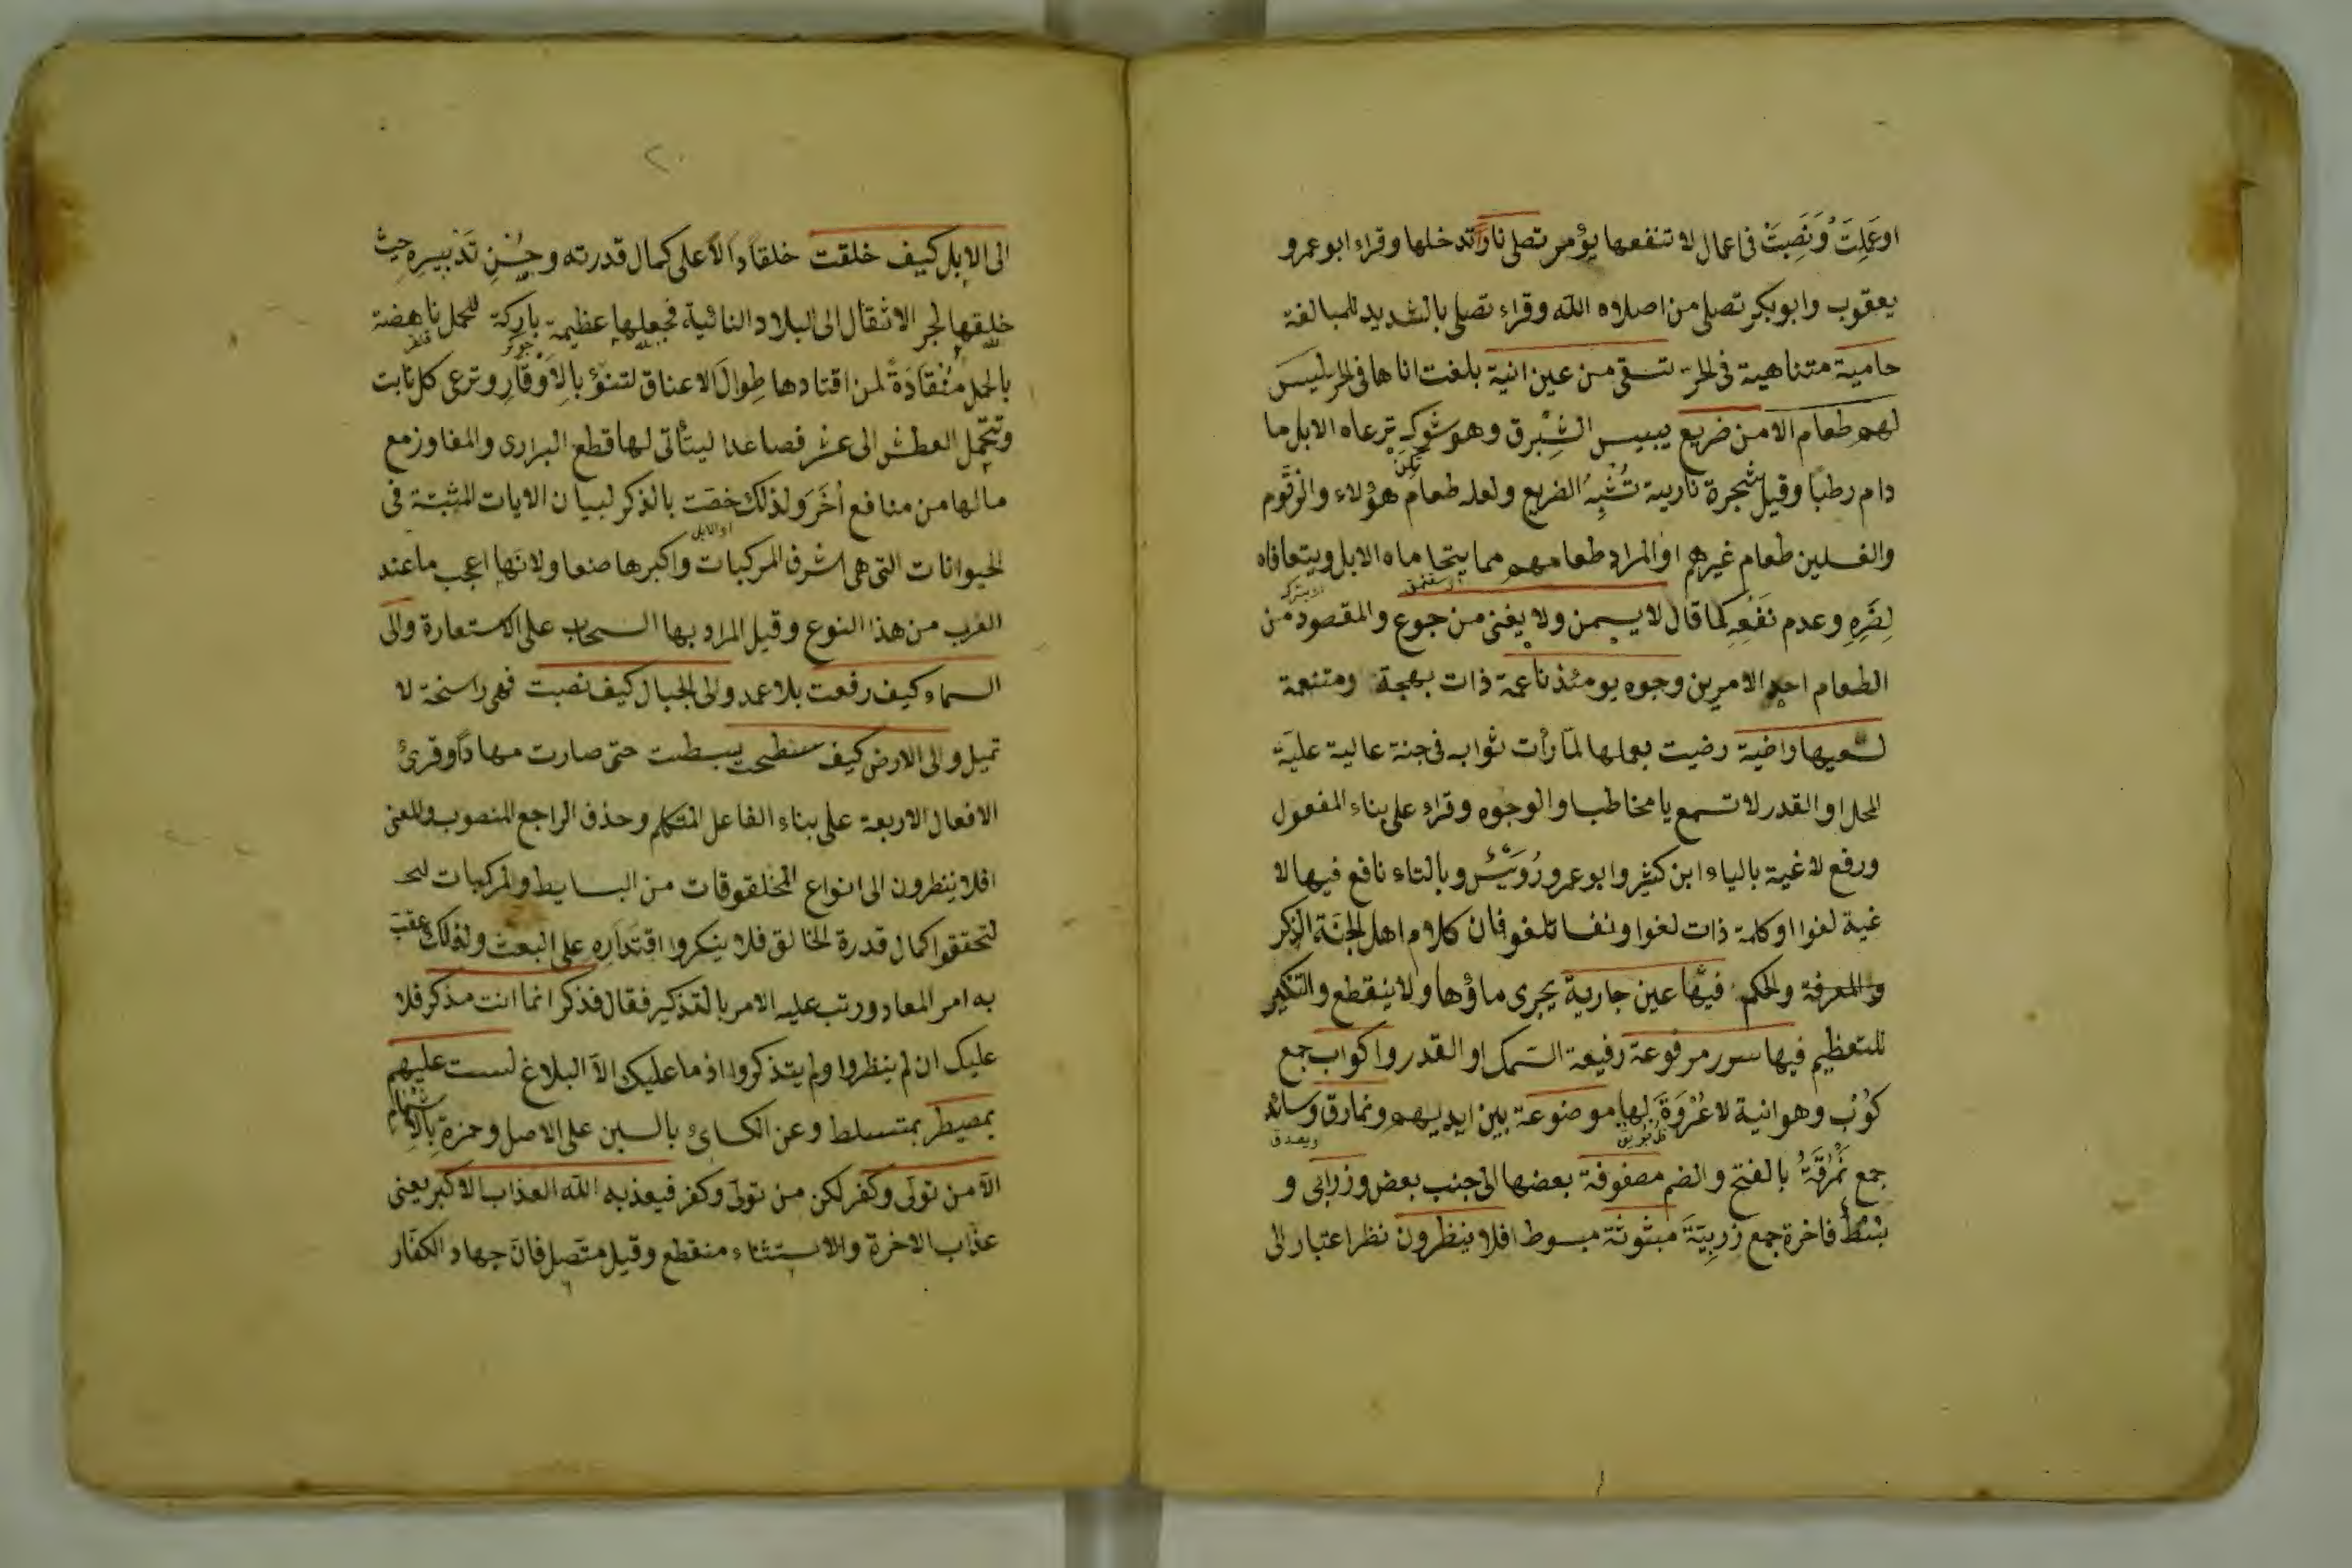 اوعَمِلَتْ وَنَصِبَتْ فى اعمال لا تنفعها يؤمر تصلى نارًا تدخلها وقراء ابو عمرو
يعقوب وابوبكر تصلى من اصلاه الله وقراء تصلى بالشديد للمبالغة
حامية متناهية فى الحر تسقى من عين انية بلغت اناها فى الحر ليس
لهم طعام الا من ضريع يبيس الشِبْرق وهو شوك ترعاه الابل ما
دام رطبًا وقيل شجرة نارية تُشْبِهُ الضريع ولعله طعام هؤلاء والزقّوم
والغسلين طعام غيرهم او المراد طعامهم مما يتحاماه الابل ويتعافاه
لِضَرِّهِ وعدم نَفْعِهِ كما قال لا يسمن ولا يغنى من جوع والمقصود من
الطعام احد الامرين وجوه يومئذ ناعمة ذات بهجة ومتنعمة
لسعيها راضية رضيت بعملها لمّا رأت ثوابه فى جنة عالية عليّة
المحل او القدر لا تسمع يا مخاطب او الوجوه وقراء على بناء المفعول
ورفع لاغية بالياء ابن كثير وابو عمرو رُوَيْسٌ وبالتاء نافع فيها لا
غية لغوا او كلمة ذات لغوا ونفسا تلغو فان كلام اهل الجنة الذكر
والمعرفة والحكم فيها عين جارية يجرى ماؤها ولا ينقطع والتنكير
للتعظيم فيها سرر مرفوعة رفيعة السّمك او القدر واكواب جمع
كوُبٍ وهو انية لا عُرْوَةَ لها موضوعة بين ايديهم ونمارق وسائد
جمع نُمْرُقَةٌ بالفتح والضم مصفوفة بعضها الى جنب بعض وزرابى و
بُسُطٌ فاخرة جمع زربِيّةَ مبثوثة مبسوط افلا ينظرون نظر اعتبار الى
٢٠
الى الابل كيف خلقت خلقًا دالًا على كمال قدرته وحُسْنِ تَدْبيرِهِ حيث
خلقها لجر الاثقال الى البلاد النائية فجعلها عظيمة بارِكة للحمل ناهضة
بالحمل مُنْقَادَةً لمن اقتادها طِوالَ الاعناق لتنوْءَ بالاَوْقَارِ وترعى كل نابت
وتحتمل العطش الى عشر فصاعدا ليتأتى لها قطع البرارى والمفاوز مع
مالها من منافع اُخَرَ ولذلك خصّت بالذكر لبيان الايات المثبتة فى
الحيوانات التى هى اشرف المركبات واكبرها صنعا ولانّها اعجب ما عند
العرب من هذا النوع وقيل المراد بها السحاب على الاستعارة والى
السماء كيف رفعت بلا عمد والى الجبال كيف نصبت فهى راسخة لا
تميل والى الارض كيف سطحت بسطت حتى صارت مهادًا وقرئ
الافعال الاربعة على بناء الفاعل المتكلم وحذف الراجع المنصوب والمعنى
افلا ينظرون الى انواع المخلقوقات من البسايط والمركبات
لتحققوا كمال قدرة الخالق فلا ينكروا اقتدارِهِ على البعث ولذلك عقّب
به امر المعاد ورتب عليه الامر بالتذكير فقال فذكر انما انت مذكر فلا
عليك ان لم ينظروا ولم يتذكروا اذ ما عليك الّا البلاغ لست عليهم
بمصيطر بمتسلط وعن الكسائ بالسين على الاصل وحمزة بِالاِشْمَام
الّا من تولّى وكفر لكن من تولّى وكفر فيعذبه الله العذاب الاكبر يعنى
عذاب الاخرة والاستثناء منقطع وقيل متّصل فان جهاد الكفّار